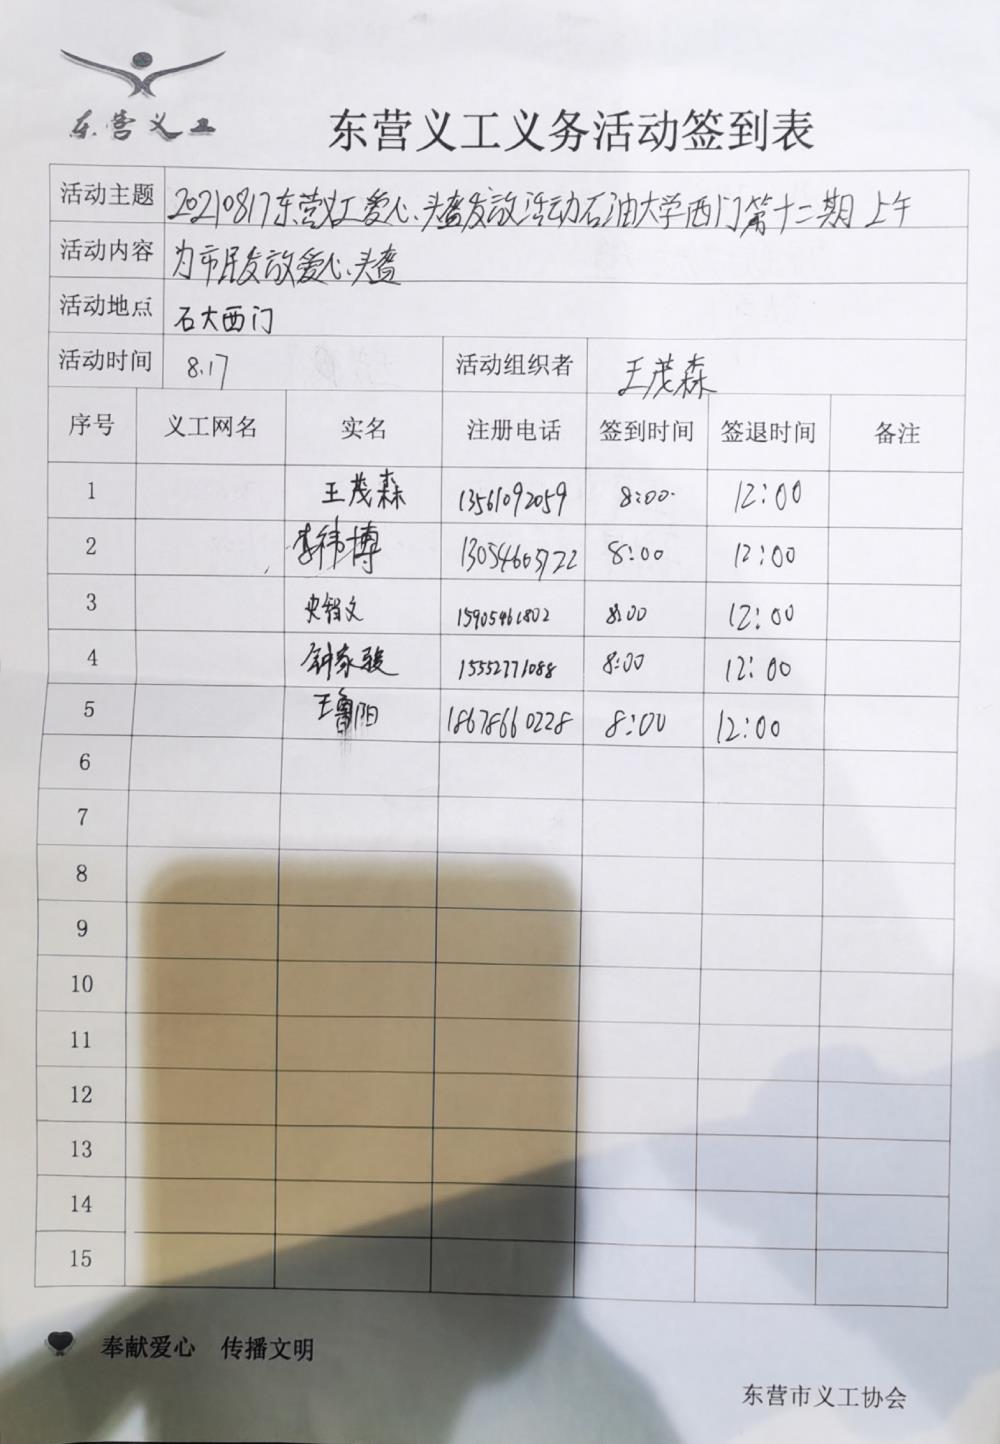 东营义工
东营义工义务活动签到表
活动主题 20210817东营义工爱心头盔发放活动石油大学西门第十二期上午
活动内容 为市民发放爱心头盔
活动地点 石大西门
活动时间 8.17 活动组织者 王茂森
序号 义工网名 实名 注册电话 签到时间 签退时间 备注
1 王茂森 13561092059 8:00 12:00
2 李祎博 13054665722 8:00 12:00
3 史智文 15905461802 8:00 12:00
4 钟家骏 15552771088 8:00 12:00
5 王鲁阳 18678660228 8:00 12:00
6
7
8
9
10
11
12
13
14
15
奉献爱心 传播文明
东营市义工协会